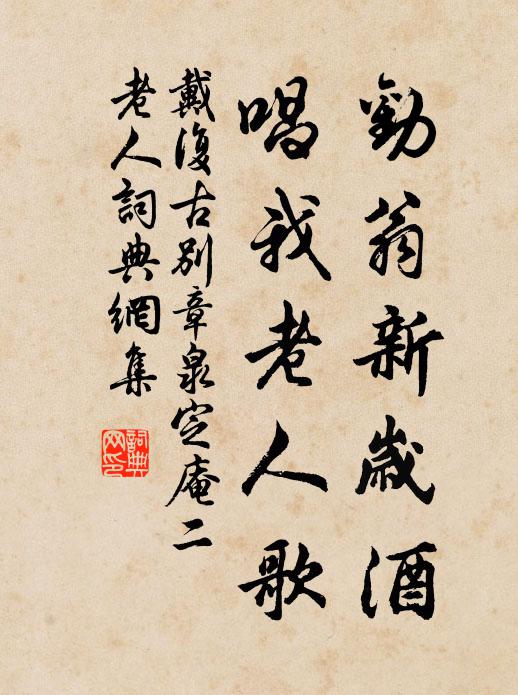 勸翁新歲酒
唱我老人歌
戴復古別章泉定庵二
老人詞典網集
詞典
网印